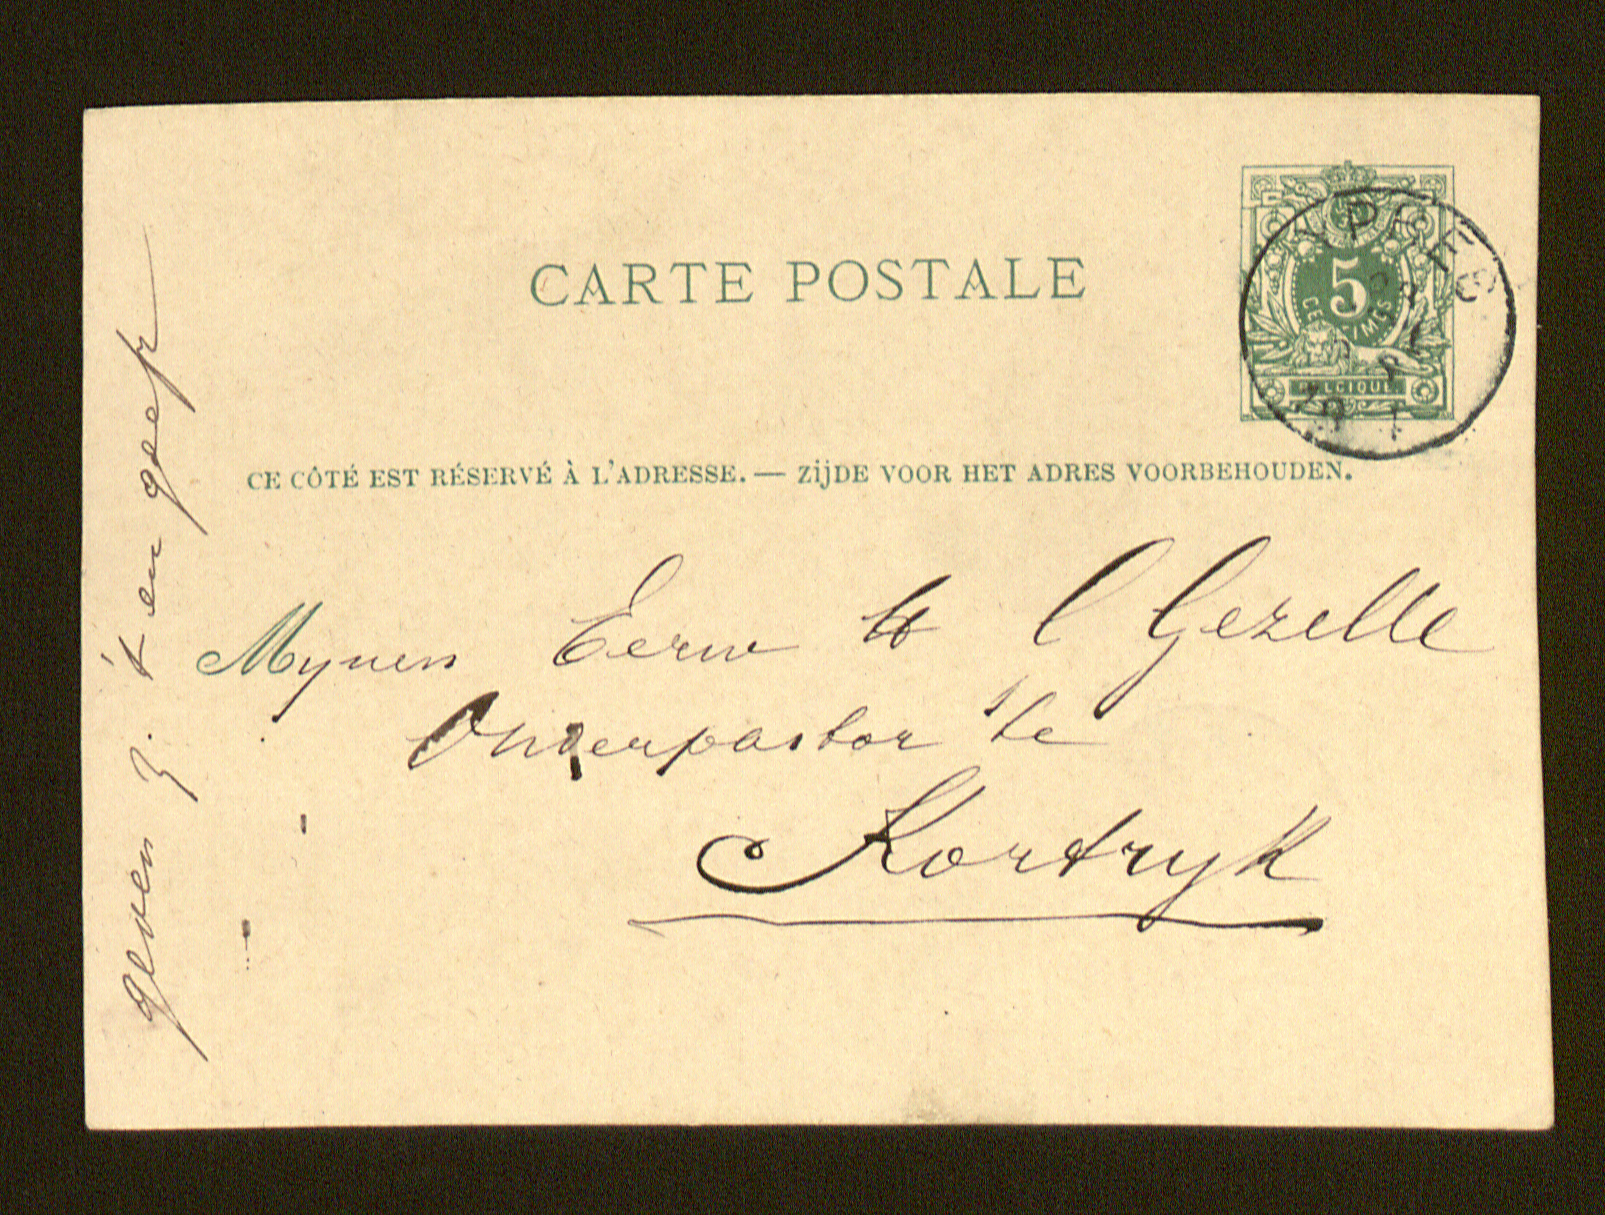 CARTE POSTALE
5
CENTIMES
BELGIQUE
YPRES
CE CÔTÉ EST RÉSERVÉ À L'ADRESSE. — ZIJDE VOOR HET ADRES VOORBEHOUDEN.
Mynen Eerw H G Gezelle
Onderpastor te
Kortryk
't en goef